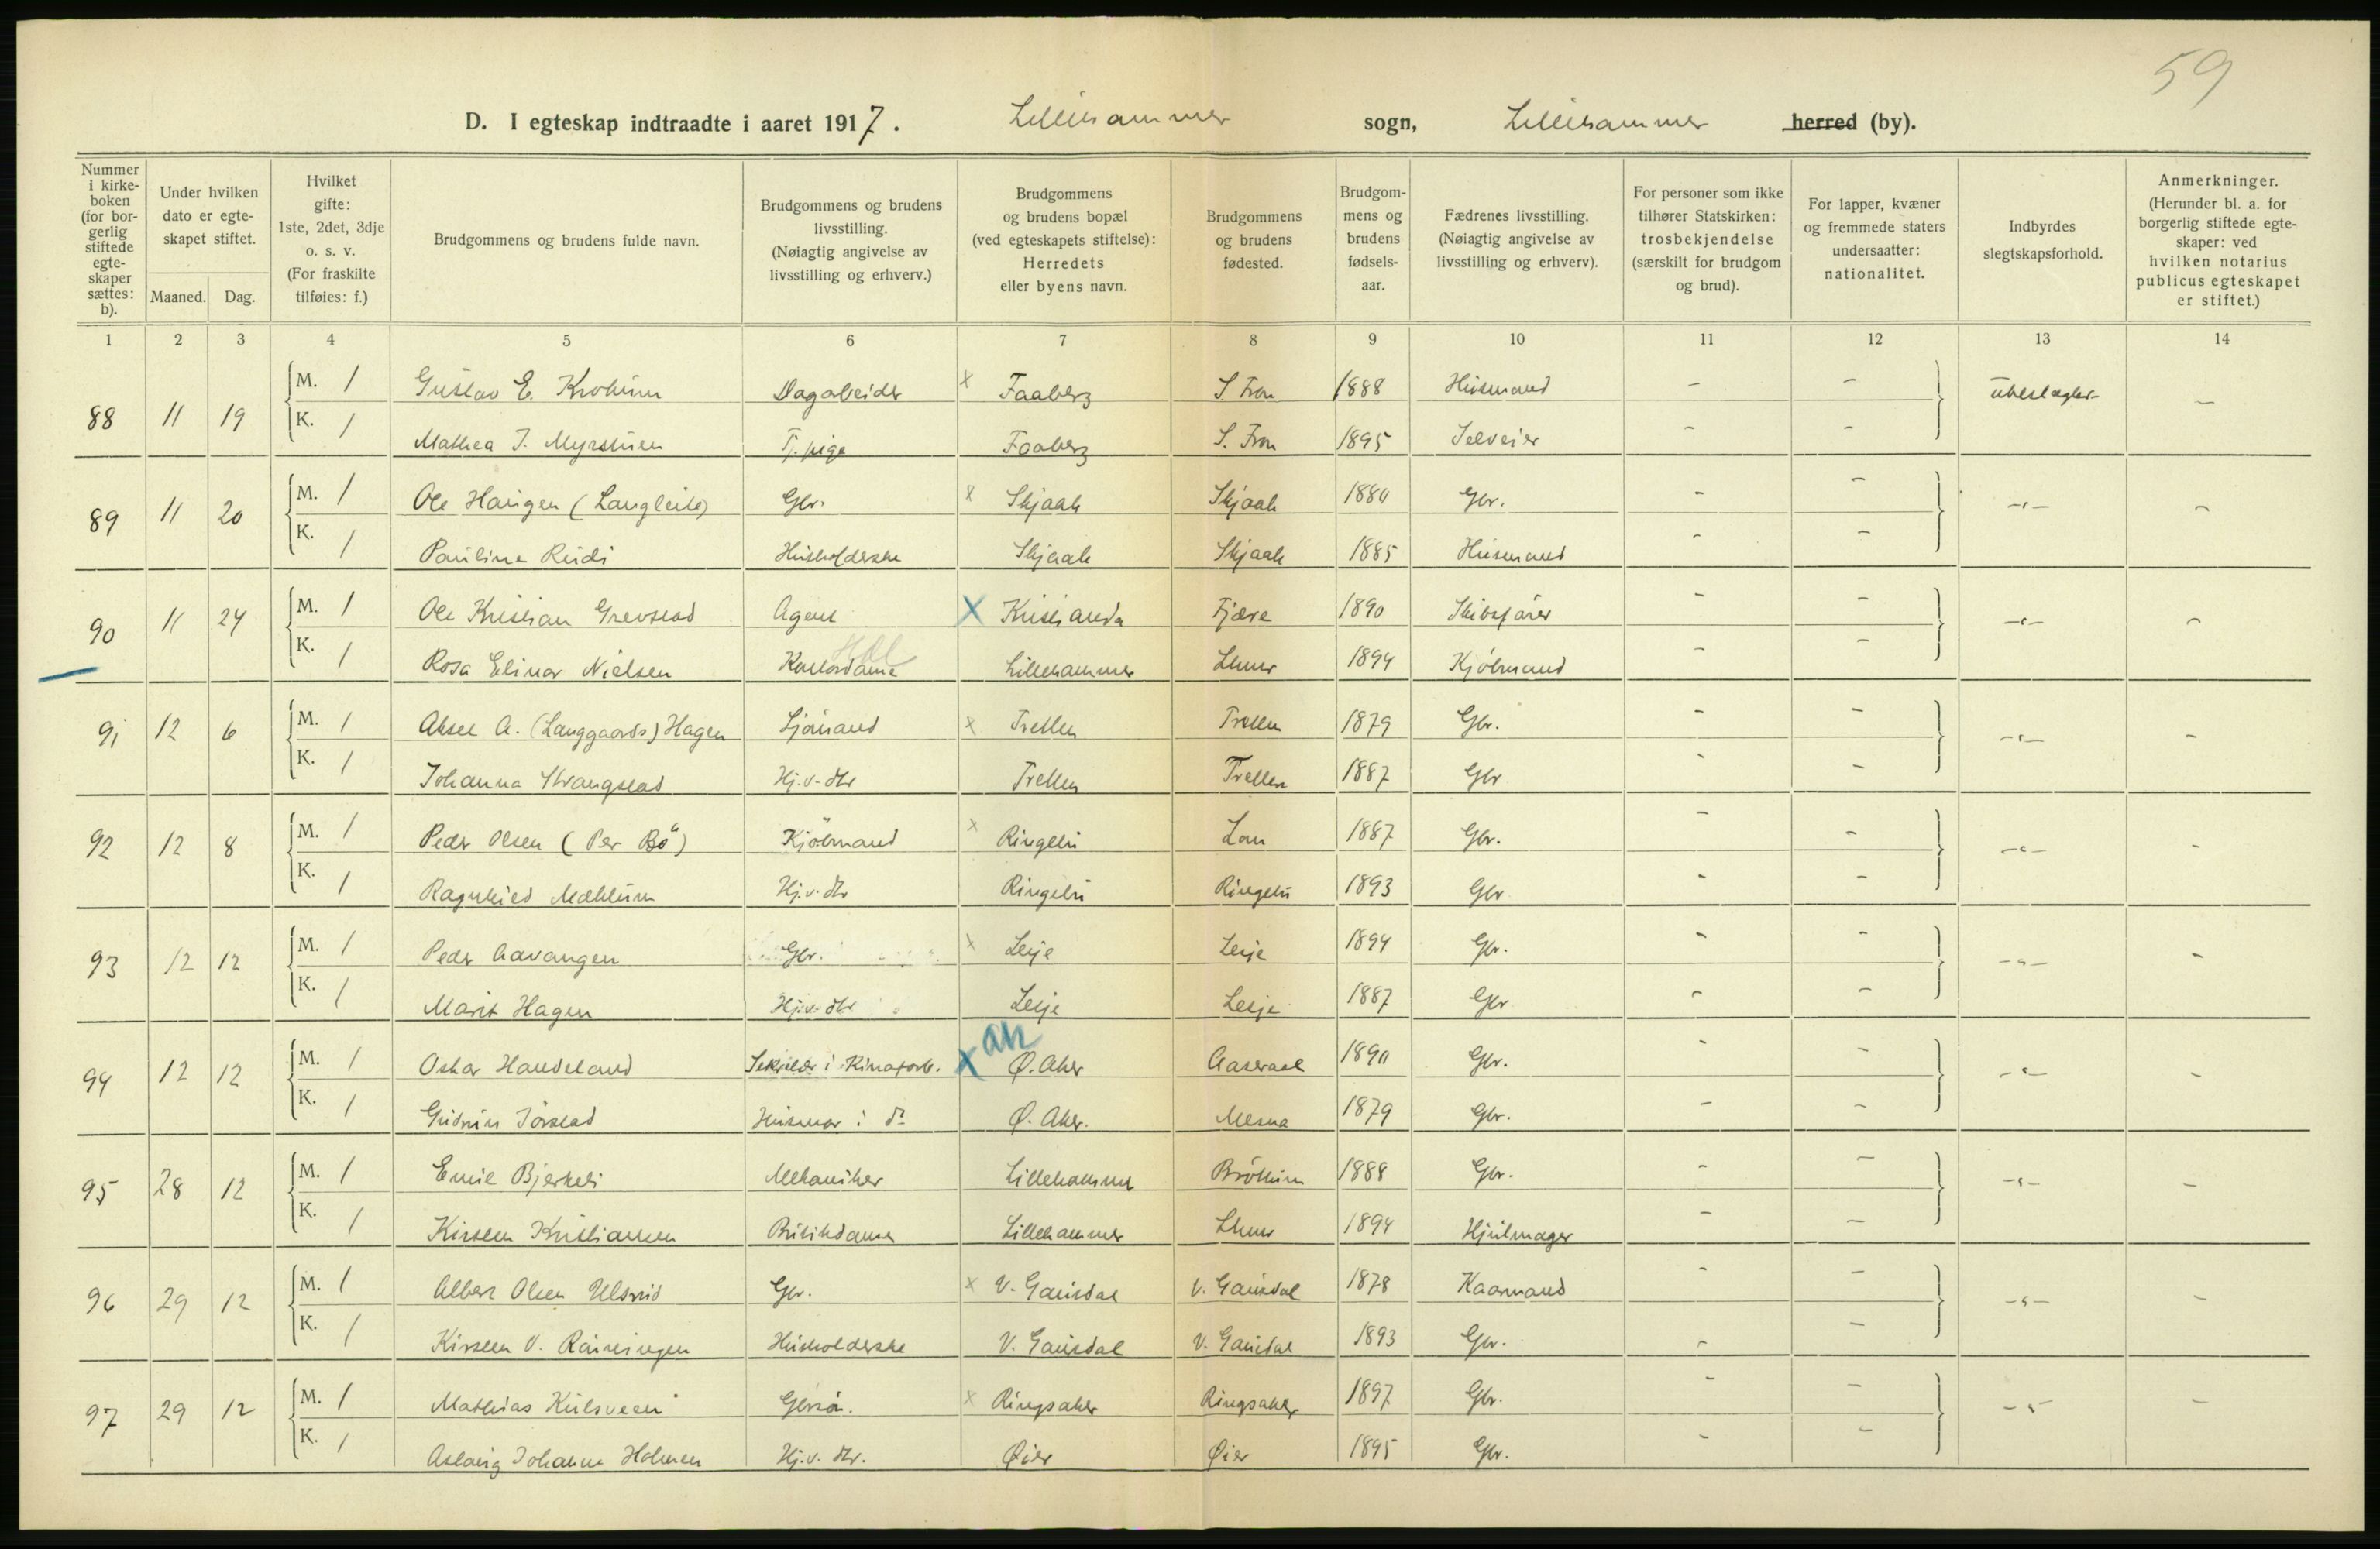 59
D. I egteskap indtraadte i aaret 1917. Lillehammer sogn, Lillehammer herred (by).
Nummer i kirke-boken (for bor-gerlig stiftede egte-skaper sættes: b).
Under hvilken dato er egte-skapet stiftet.
Maaned. Dag.
Hvilket gifte: 1ste, 2det, 3dje o. s. v. (For fraskilte tilføies: f.)
Brudgommens og brudens fulde navn.
Brudgommens og brudens livsstilling. (Nøiagtig angivelse av livsstilling og erhverv.)
Brudgommens og brudens bopæl (ved egteskapets stiftelse): Herredets eller byens navn.
Brudgommens og brudens fødested.
Brudgom-mens og brudens fødsels-aar.
Fædrenes livsstilling. (Nøiagtig angivelse av livsstilling og erhverv).
For personer som ikke tilhører Statskirken: trosbekjendelse (særskilt for brudgom og brud).
For lapper, kvæner og fremmede staters undersaatter: nationalitet.
Indbyrdes slegtskapsforhold.
Anmerkninger. (Herunder bl. a. for borgerlig stiftede egte-skaper: ved hvilken notarius publicus egteskapet er stiftet.)
1 2 3 4 5 6 7 8 9 10 11 12 13 14
88 11 19 M. 1 Gustav E. Dagarbeider x Faaberg S. Fron 1888 Husmand - - -
K. 1 Mathea J. Myrstuen Tj. pige Faaberg S. Fron 1895 Selveier - -
89 11 20 M. 1 Ole Haugen (Langleite) Gbr. x Skjaak Skjaak 1880 Gbr. - - -"- -
K. 1 Pauline Rudi Husholderske Skjaak Skjaak 1885 Husmand - -
90 11 24 M. 1 Ole Kristian Grevstad Agent X Kristiania Fjære 1890 Skibsfører - - -"- -
K. 1 Rosa Elinor Nielsen Kontordame Lillehammer Lhmr 1894 Kjöbmand - -
91 12 6 M. 1 Aksel A. (Langgaards) Hagen Sjömand x Tretten Tretten 1879 Gbr. - - -"- -
K. 1 Johanna Strangstad Hj.v. dtr Tretten Tretten 1887 Gbr - -
92 12 8 M. 1 Peder Olsen (Per Bö) Kjöbmand x Ringebu Lom 1887 Gbr. - - -"- -
K. 1 Ragnhild Mæhlum Hj.v. dtr Ringebu Ringebu 1893 Gbr - -
93 12 12 M. 1 Peder Aavangen Gbr. x Lesje Lesje 1894 Gbr. - - -"- -
K. 1 Marit Hagen Hj.v. dtr Lesje Lesje 1887 Gbr - -
94 12 12 M. 1 Oskar Handeland Sekretær i Kinaforb. X Ø. Aker Aaseral 1890 Gbr. - - -"- -
K. 1 Gudrun Jörstad Husmor i do Ø. Aker. Mesna 1879 Gbr. - -
95 28 12 M. 1 Emil Bjerkeli Mekaniker Lillehammer Bröttum 1888 Gbr. - - -"- -
K. 1 Kirsten Kristiansen Butikdame Lillehammer Lhmr 1894 Hjulmager - -
96 29 12 M. 1 Albert Olsen Ulsrud Gbr. x V. Gausdal V. Gausdal 1878 Kaarmand - - -"- -
K. 1 Kirsten O. Husholderske V. Gausdal V. Gausdal 1893 Gbr. - -
97 29 12 M. 1 Mathias Kulsveen Gbrsön. x Ringsaker Ringsaker 1897 Gbr. - - -"- -
K. 1 Aslaug Johanne Holmen Hj.v. dtr. Øier Øier 1895 Gbr. - -